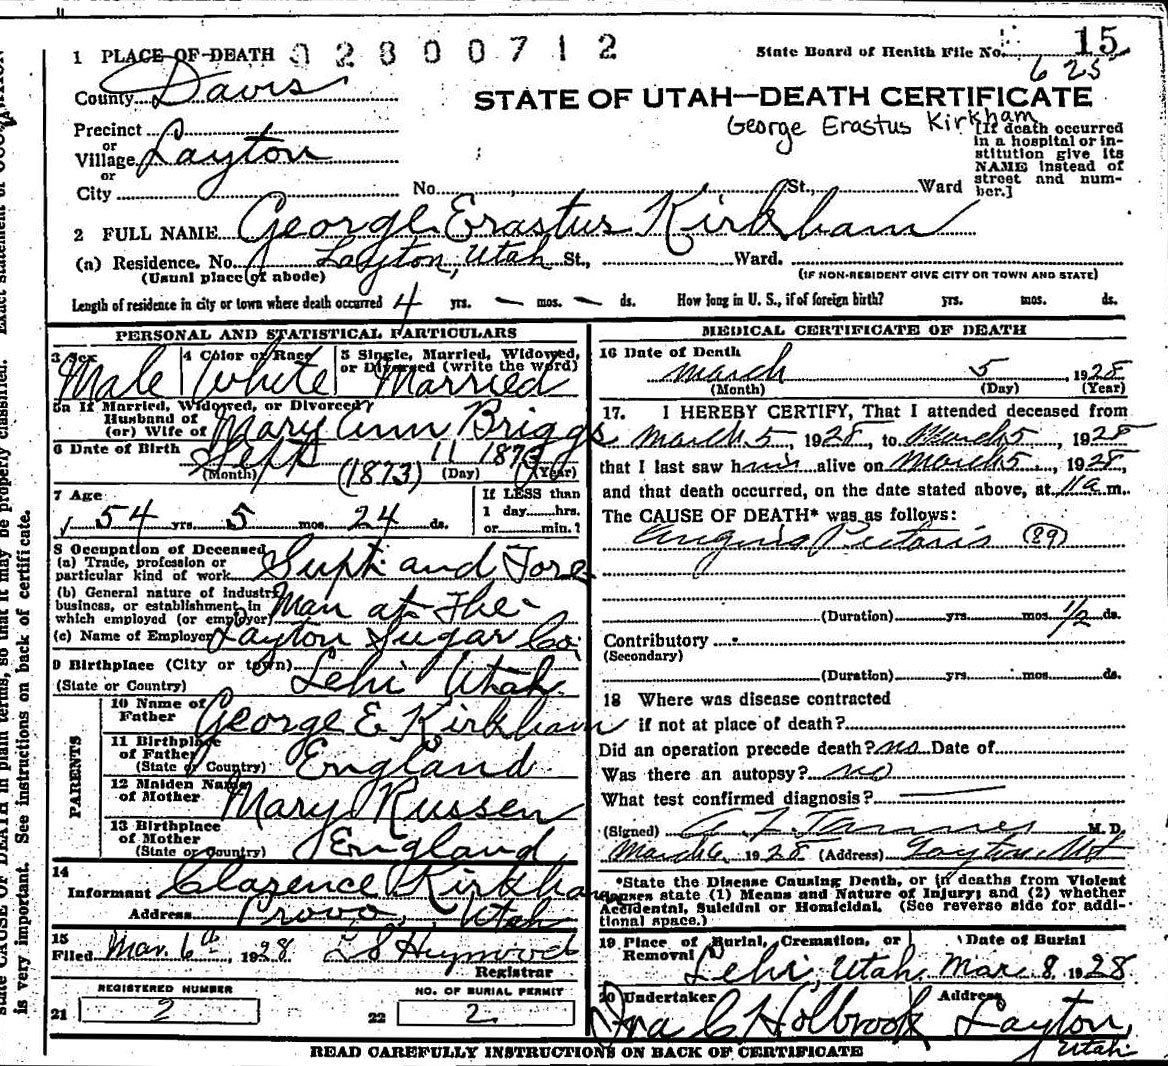 1 PLACE OF DEATH 92800712 State Board of Health File No. 15
625
County Davis
STATE OF UTAH—DEATH CERTIFICATE
George Erastus Kirkham
Precinct
or
Village Layton
or
City No. St., Ward
[If death occurred
in a hospital or in-
stitution give its
NAME instead of
street and num-
ber.]
2 FULL NAME George Erastus Kirkham
(a) Residence. No. Layton, Utah St., Ward.
(Usual place of abode) (IF NON-RESIDENT GIVE CITY OR TOWN AND STATE)
Length of residence in city or town where death occurred 4 yrs. — mos. — ds. How long in U. S., if of foreign birth? yrs. mos. ds.
PERSONAL AND STATISTICAL PARTICULARS
3 Sex 4 Color or Race 5 Single, Married, Widowed,
or Divorced (write the word)
Male White Married
5a If Married, Widowed, or Divorced
Husband of
(or) Wife of Mary Ann Briggs
6 Date of Birth Sept 11 1873
(Month) (1873) (Day) (Year)
7 Age If LESS than
54 yrs. 5 mos. 24 ds. 1 day hrs.
or min.?
8 Occupation of Deceased
(a) Trade, profession or
particular kind of work Supt. and Fore
(b) General nature of industry,
business, or establishment in
which employed (or employer) Man at The
(c) Name of Employer Layton Sugar Co.
9 Birthplace (City or town)
(State or Country) Lehi Utah
PARENTS
10 Name of
Father George E Kirkham
11 Birthplace
of Father
(State or Country) England
12 Maiden Name
of Mother Mary Russen
13 Birthplace
of Mother
(State or Country) England
14
Informant Clarence Kirkham
Address Provo, Utah
15
Filed Mar. 6th, 1928 Heywood
Registrar
REGISTERED NUMBER NO. OF BURIAL PERMIT
21 2 22 2
MEDICAL CERTIFICATE OF DEATH
16 Date of Death
March 5 1928
(Month) (Day) (Year)
17. I HEREBY CERTIFY, That I attended deceased from
March 5, 1928, to March 5, 1928
that I last saw him alive on March 5, 1928,
and that death occurred, on the date stated above, at 11 a m.
The CAUSE OF DEATH* was as follows:
Angina Pectoris (89)
(Duration) yrs. mos. 1/2 ds.
Contributory
(Secondary)
(Duration) yrs. mos. ds.
18 Where was disease contracted
if not at place of death?
Did an operation precede death? no Date of
Was there an autopsy? no
What test confirmed diagnosis?
(Signed) M. D.
March 6, 1928 (Address) Layton Ut
*State the Disease Causing Death, or in deaths from Violent
Causes state (1) Means and Nature of Injury; and (2) whether
Accidental, Suicidal or Homicidal. (See reverse side for addi-
tional space.)
19 Place of Burial, Cremation, or Date of Burial
Removal Lehi, Utah. Mar. 8, 1928
20 Undertaker Address
Ira C Holbrook Layton,
Utah
READ CAREFULLY INSTRUCTIONS ON BACK OF CERTIFICATE
state CAUSE OF DEATH in plain terms, so that it may be properly classified. Exact statement of OCCUPATION
is very important. See instructions on back of certificate.